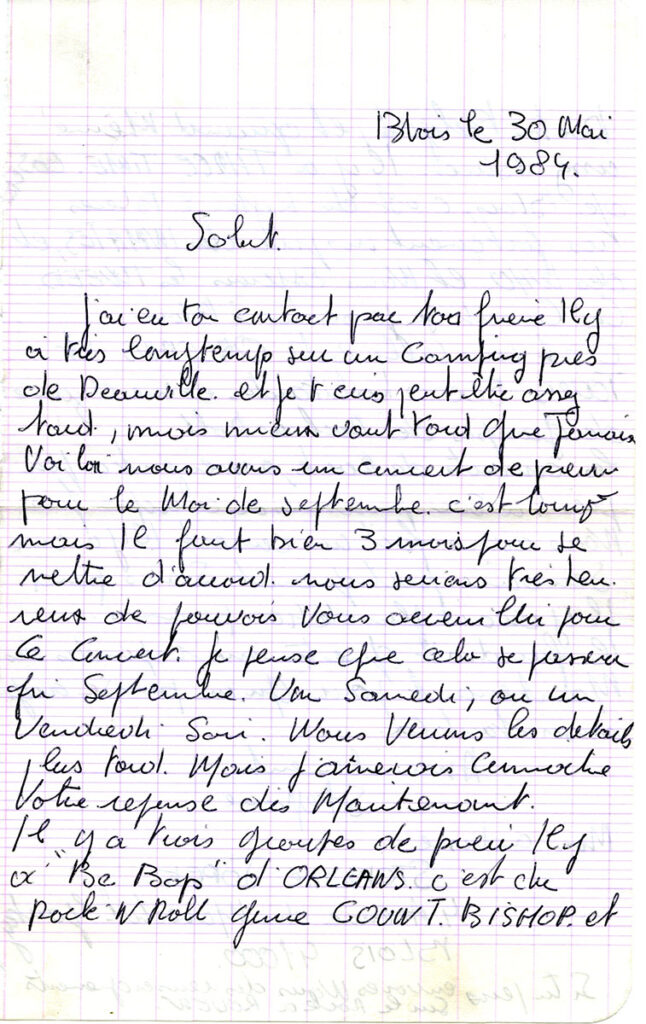 Blois le 30 Mai
1984.
Salut.
j'ai eu ton contact par ton frère Il y
a très longtemp sur un Camping près
de Deauville. et je t'ecris peut être assez
tard, mais mieux vaut tard que Jamais
Voilà nous avons un concert de prevu
pour le Moi de septembre. c'est long
mais Il faut bien 3 mois pour se
mettre d'accord. nous serions très heu-
reux de pouvois Vous accueillir pour
Ce Concert. Je pense que cela se passera
fin Septembre. Un Samedi, ou un
Vendredi Soir. Nous Verrons les details
plus tard. Mais J'aimerais Connaitre
Votre reponse dès Maintenant.
Il y a trois groupes de prevu Il y
a "Be Bop" d'ORLEANS. c'est du
Rock'N'Roll genre COUNT. BISHOP. et
BLOIS 41000